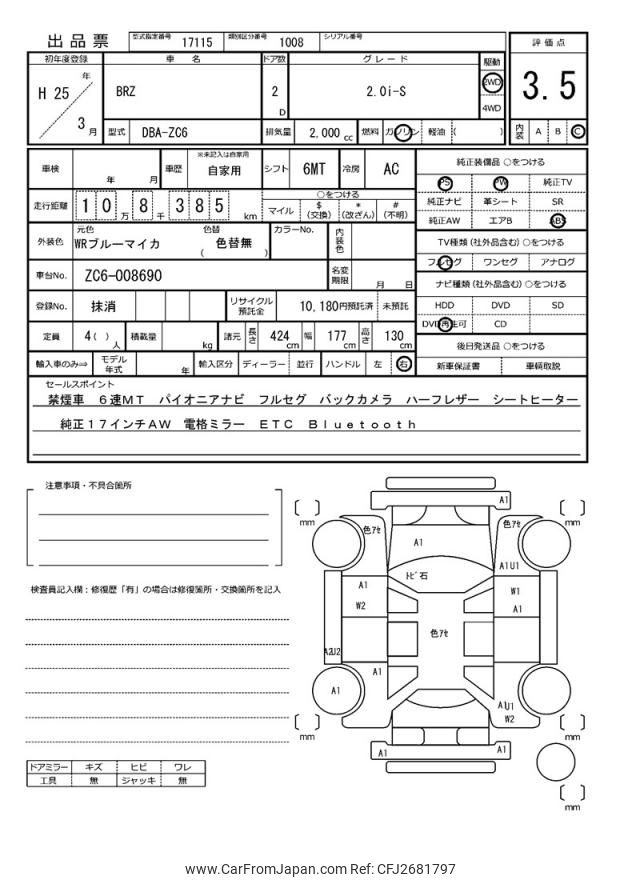 出品票 型式指定番号 17115 類別区分番号 1008 シリアル番号
初年度登録 車名 ドア数 グレード 駆動 評価点
H 25 年 3 月 BRZ 2 D 2.0i-S 2WD 4WD 3.5
型式 DBA-ZC6 排気量 2,000 cc 燃料 ガソリン 軽油 ( ) 内装 A B C
車検 年 月 車歴 ※未記入は自家用 自家用 シフト 6MT 冷房 AC
走行距離 10万 8千 385 km ○をつける マイル $ (交換) * (改ざん) # (不明)
外装色 元色 WRブルーマイカ 色替 ( 色替無 ) カラーNo. 内装色
車台No. ZC6-008690 名変期限 月 日
登録No. 抹消 リサイクル預託金 10,180円預託済 未預託
定員 4 ( ) 人 積載量 kg 諸元 長さ 424 cm 幅 177 cm 高さ 130 cm
輸入車のみ⇒ モデル年式 年 輸入区分 ディーラー 並行 ハンドル 左 右
純正装備品 ○をつける
PS PW 純正TV
純正ナビ 革シート SR
純正AW エアB ABS
TV種類 (社外品含む) ○をつける
フルセグ ワンセグ アナログ
ナビ種類 (社外品含む) ○をつける
HDD DVD SD
DVD再生可 CD
後日発送品 ○をつける
新車保証書 車輌取説
セールスポイント
禁煙車 6速MT パイオニアナビ フルセグ バックカメラ ハーフレザー シートヒーター
純正17インチAW 電格ミラー ETC Bluetooth
注意事項・不具合箇所
検査員記入欄:修復歴「有」の場合は修復箇所・交換箇所を記入
ドアミラー キズ ヒビ ワレ
工具 無 ジャッキ 無
A1
mm 色アセ 色アセ mm
A1
A1U1
トビ石
A1 W1
W2 A1
色アセ
A2U2
A1
A1 A1U1
W2
mm mm
A1 A1
mm
www.CarFromJapan.com Ref: CFJ2681797